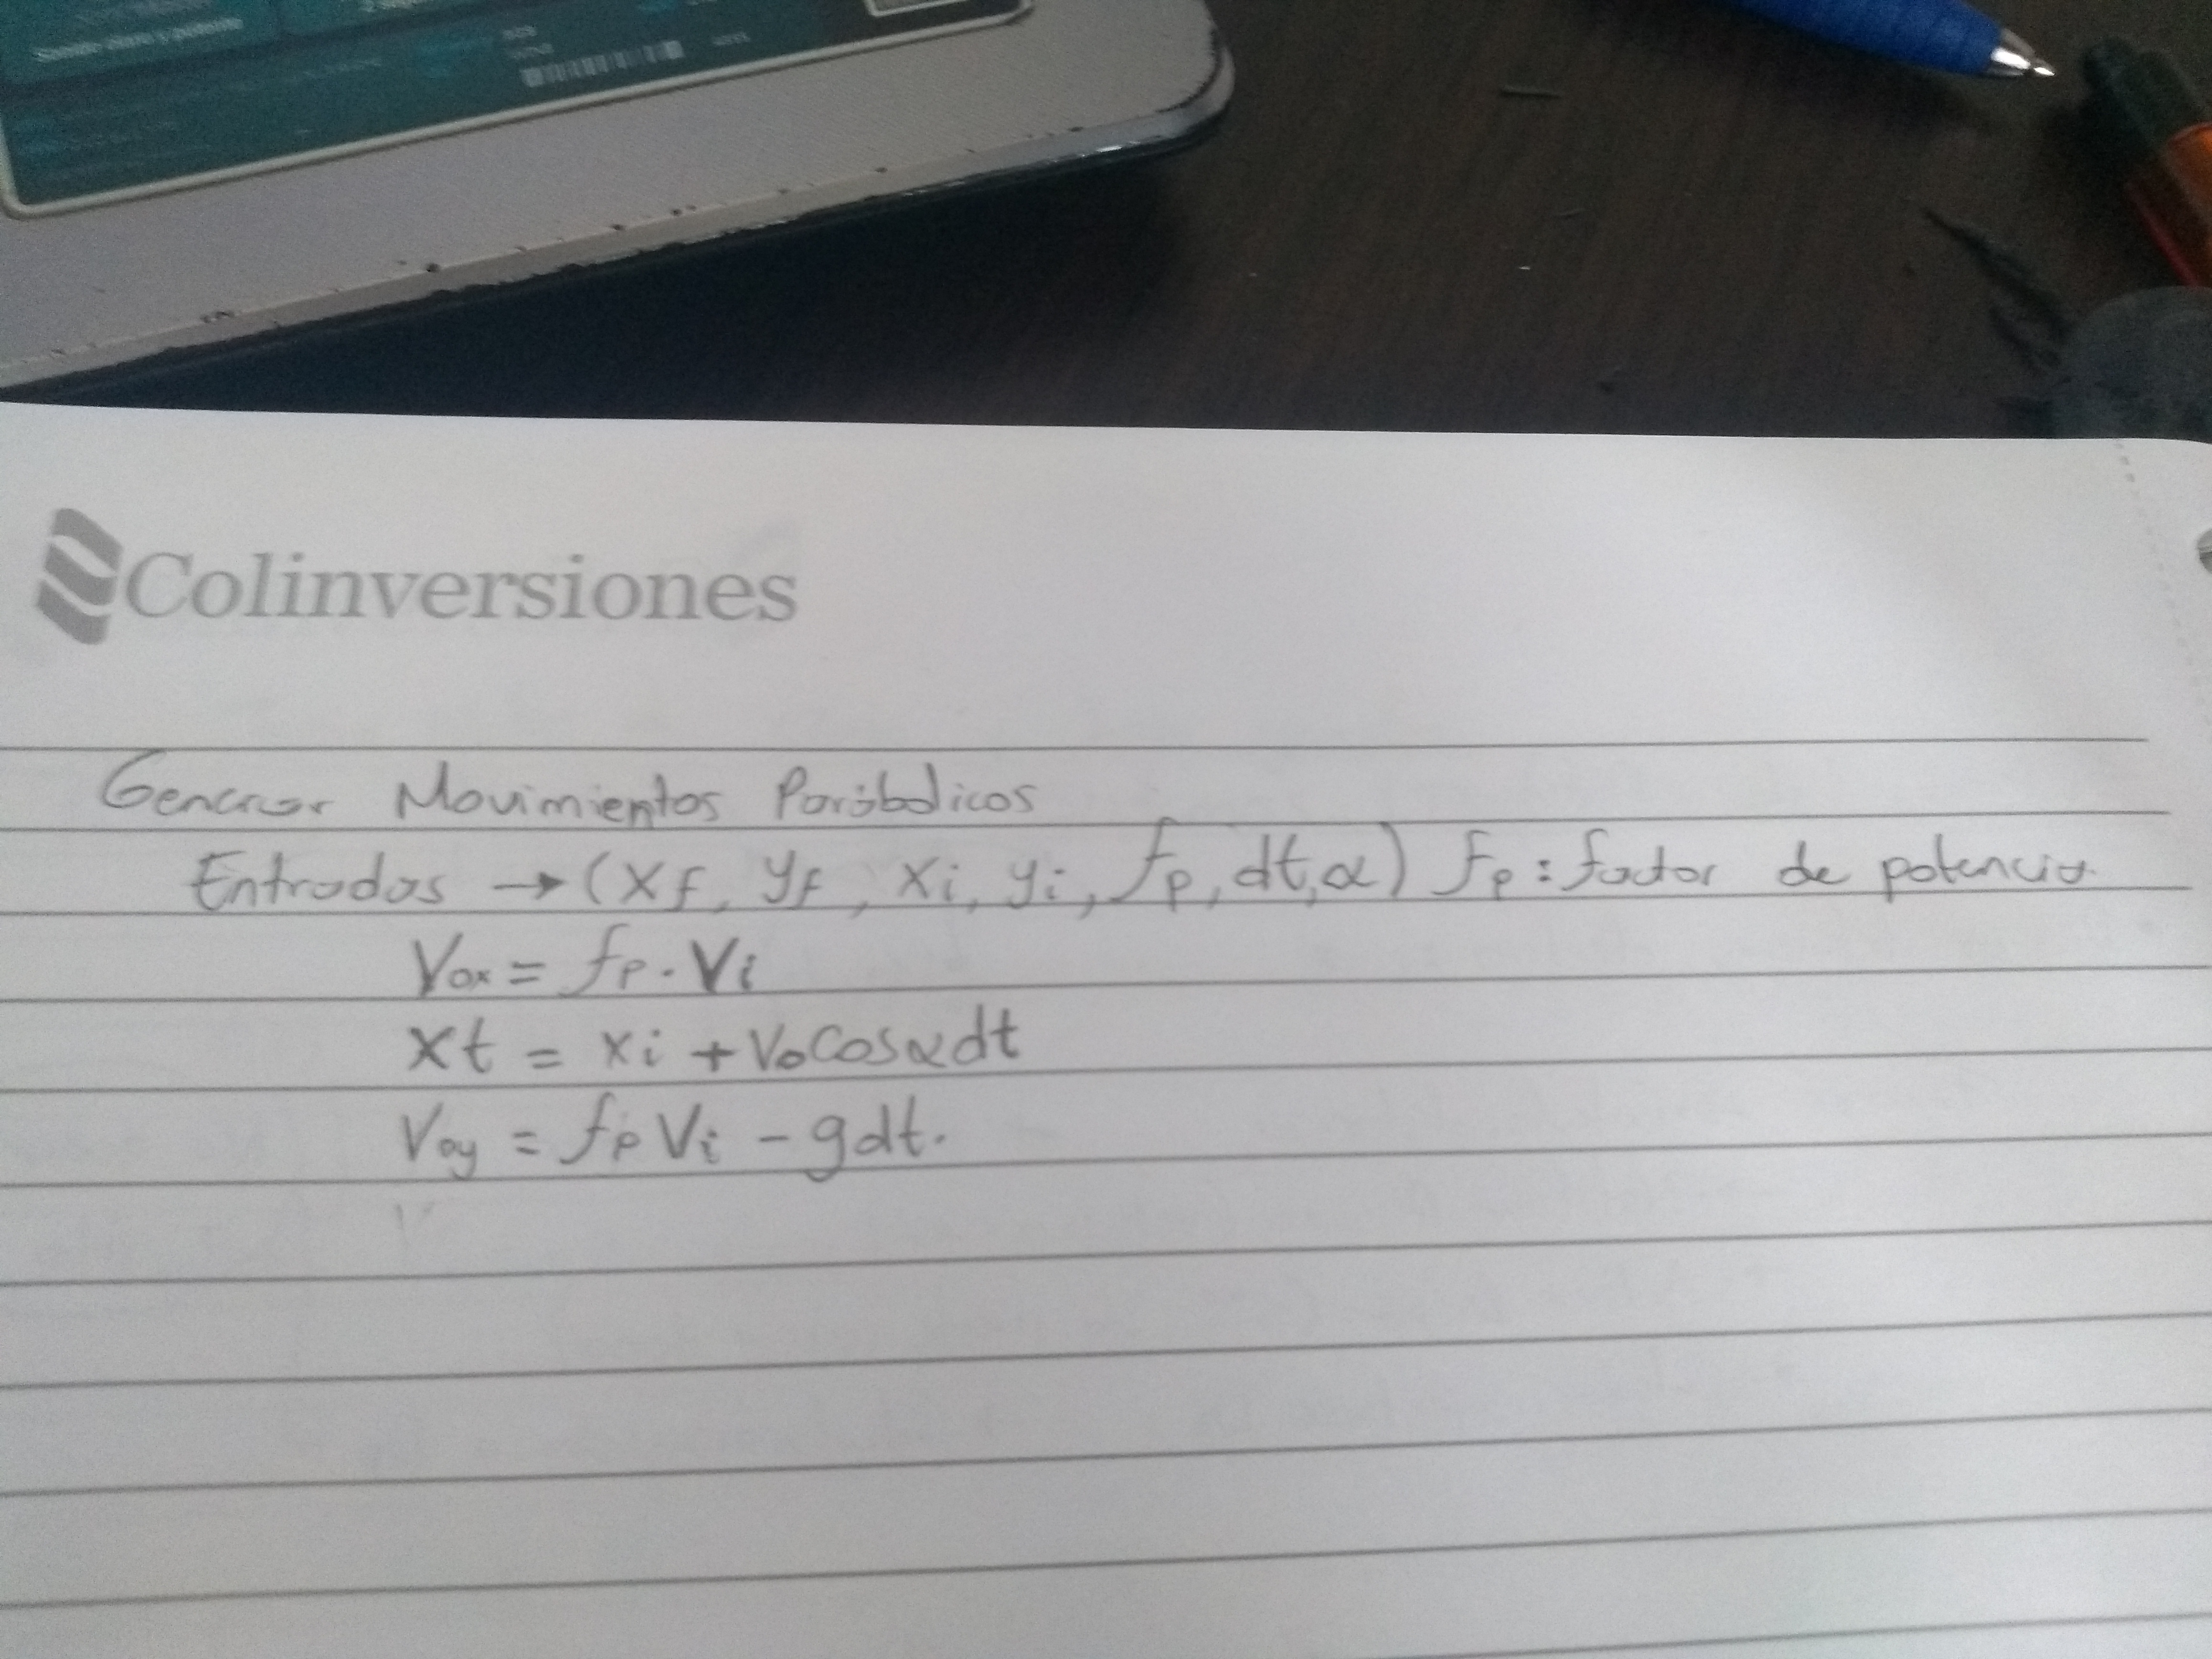 Colinversiones
Generar Movimientos Parábolicos
Entradas → (xf, yf, xi, yi, fp, dt, α) fp: factor de potencia.
Vox = fp . Vi
xt = xi + Vo cos α dt
Voy = fp Vi - gdt.